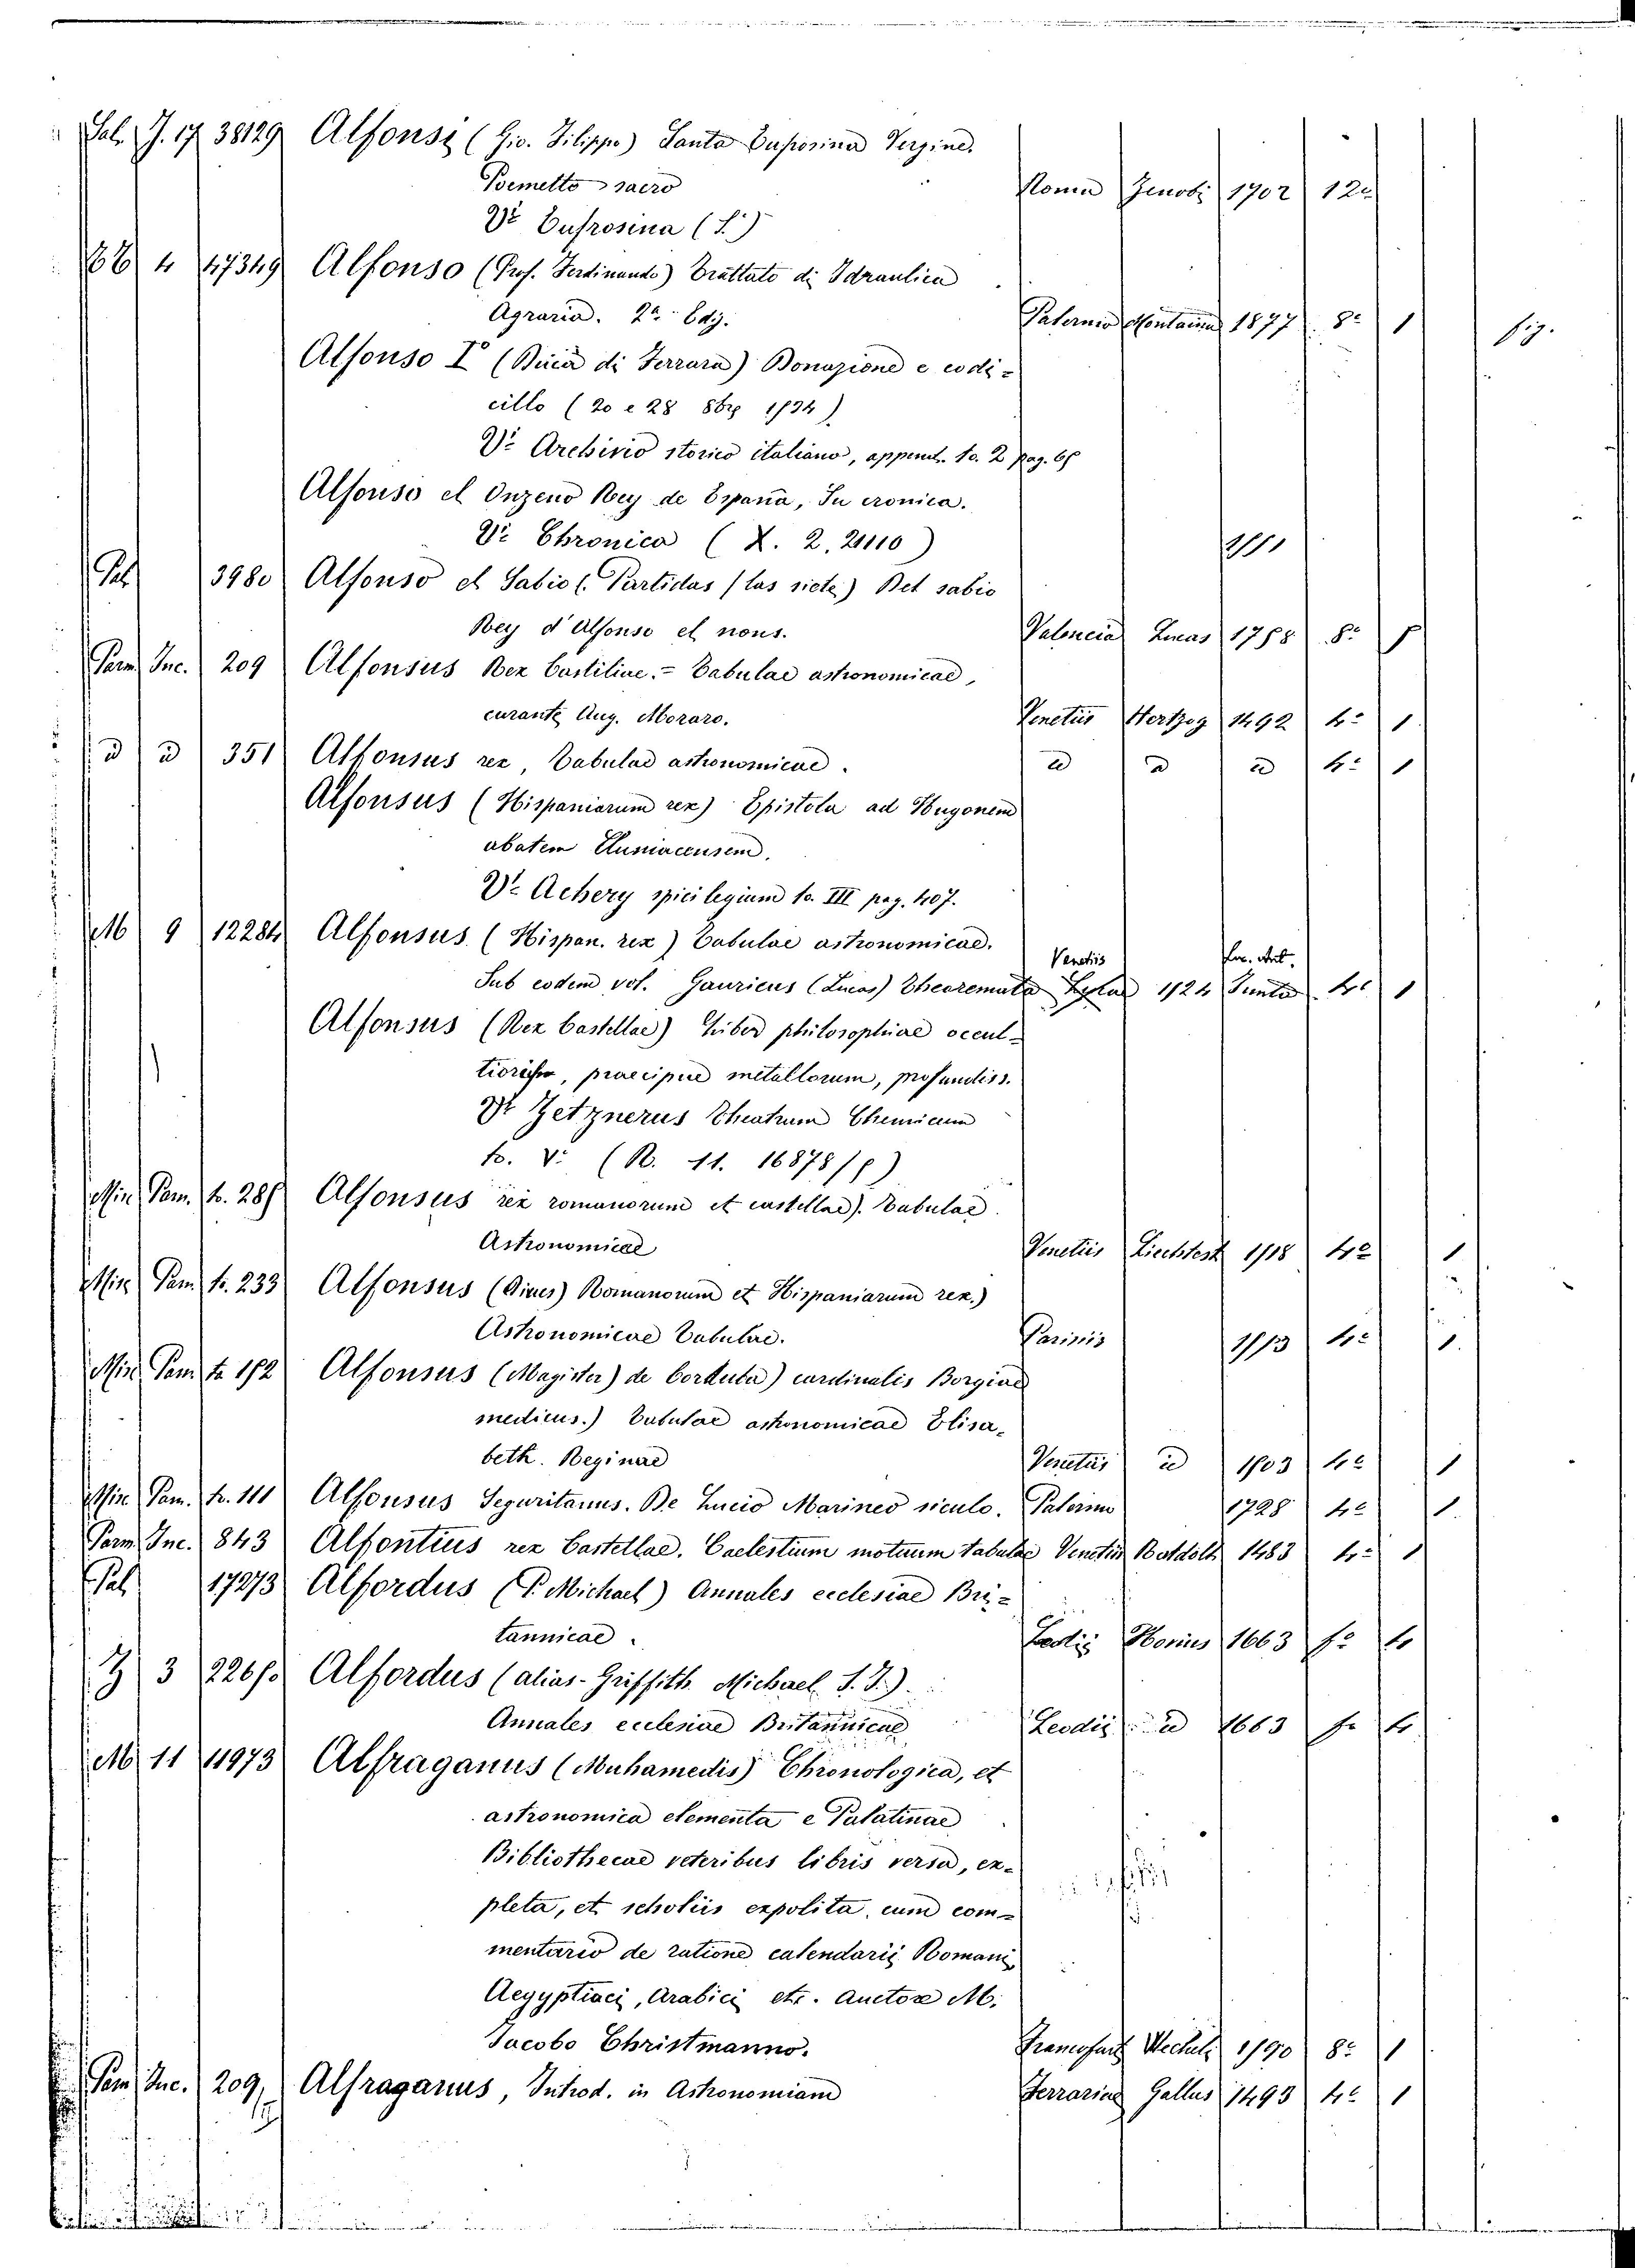 Sal. J. 17 38129 Alfonsi (Gio. Filippo) Santa Eufrosina Vergine.
Poemetto sacro Roma Zenobi 1702 12°
V: Eufrosina (S.)
4 47349 Alfonso (Prof. Ferdinando) Trattato di Idraulica
Agraria. 2a Ediz. Palermo Montaina 1877 8° 1 fig.
Alfonso I° (Duca di Ferrara) Donazione e codi-
cillo (20 e 28 8bre 1534)
V: Archivio storico italiano, append. to. 2 pag. 65
Alfonso el Onzeno Rey de España, Su cronica.
V: Chronica (X. 2. 21110) 1551
Pal 3980 Alfonso el Sabio (Partidas (las siete) Del sabio
Rey d'Alfonso el nono. Valencia Lucas 1758 8° 5
Parm Inc. 209 Alfonsus Rex Castiliae. = Tabulae astronomicae,
curante Aug. Moraro. Venetiis Hertzog 1492 4° 1
d d 351 Alfonsus rex, Tabulae astronomicae. d d d 4° 1
Alfonsus (Hispaniarum rex) Epistola ad Hugonem
abatem Cluniacensem.
V: Achery spicilegium to. III pag. 407.
M 9 12284 Alfonsus (Hispan. rex) Tabulae astronomicae.
Venetiis Luc. Ant.
Sub eodem vol. Gauricus (Lucas) Theoremata 1524 Junta 4° 1
Alfonsus (Rex Castellae) Liber philosophiae occul-
tioris, praecipue metallorum, profundiss.
V: Zetznerus Theatrum Chemicum
to. V: (R. 11. 16878/5)
Misc Parm. to. 285 Alfonsus rex romanorum et castellae). Tabulae
Astronomicae Venetiis Liechtest 1518 4° 1
Misc Parm. to. 233 Alfonsus (Divus) Romanorum et Hispaniarum rex.)
Astronomicae Tabulae. Parisiis 1513 4° 1.
Misc Parm. to 152 Alfonsus (Magister) de Corduba) cardinalis Borgiae
medicus.) Tabulae astronomicae Elisa-
beth. Reginae Venetiis d 1503 4° 1
Misc Parm. to. 111 Alfonsus Seguritanus. De Lucio Marineo siculo. Palermo 1728 4° 1.
Parm Inc. 843 Alfontius rex Castellae. Caelestium motuum tabulae Venetiis Ratdolt 1483 4° 1
Pal 17273 Alfordus (P. Michael) Annales ecclesiae Bri-
tannicae. Leodii Hovius 1663 fo 4
Z 3 22650 Alfordus (alias-Griffith Michael S. J.).
Annales ecclesiae Britannicae Leodii d 1663 fo 4
M 11 11973 Alfraganus (Muhamedis) Chronologica, et
astronomica elementa e Palatinae
Bibliothecae veteribus libris versa, ex-
pleta, et scholiis expolita, cum com-
mentario de ratione calendarii Romani,
Aegyptiaci, Arabici etc. Auctore M.
Jacobo Christmanno. Francofurti Wecheli 1590 8° 1
Parm Inc. 209, Alfraganus, Introd. in Astronomiam Ferrariae Gallus 1493 4° 1